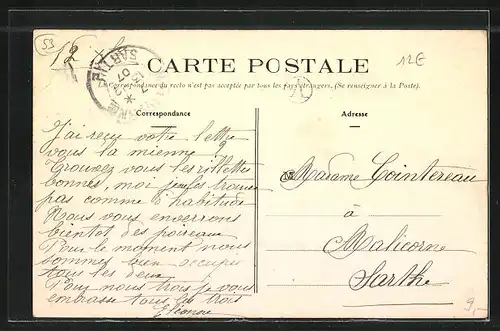 53
12E
SARTHE
07
CARTE POSTALE
La Correspondance du recto n'est pas acceptée par tous les pays étrangers. (Se renseigner à la Poste).
Correspondance
Adresse
J'ai reçu votre lettre
vous la mienne ?
Trouvez vous les rillettes
bonnes, moi je les trouve
pas comme d'habitude
Nous vous enverrons
bientôt des poireaux
Pour le moment nous
sommes bien occupés
tous les deux
Pour nous trois je vous
embrasse tous les trois
Eléonore
Madame Cointereau
à
Malicorne
Sarthe
9,-